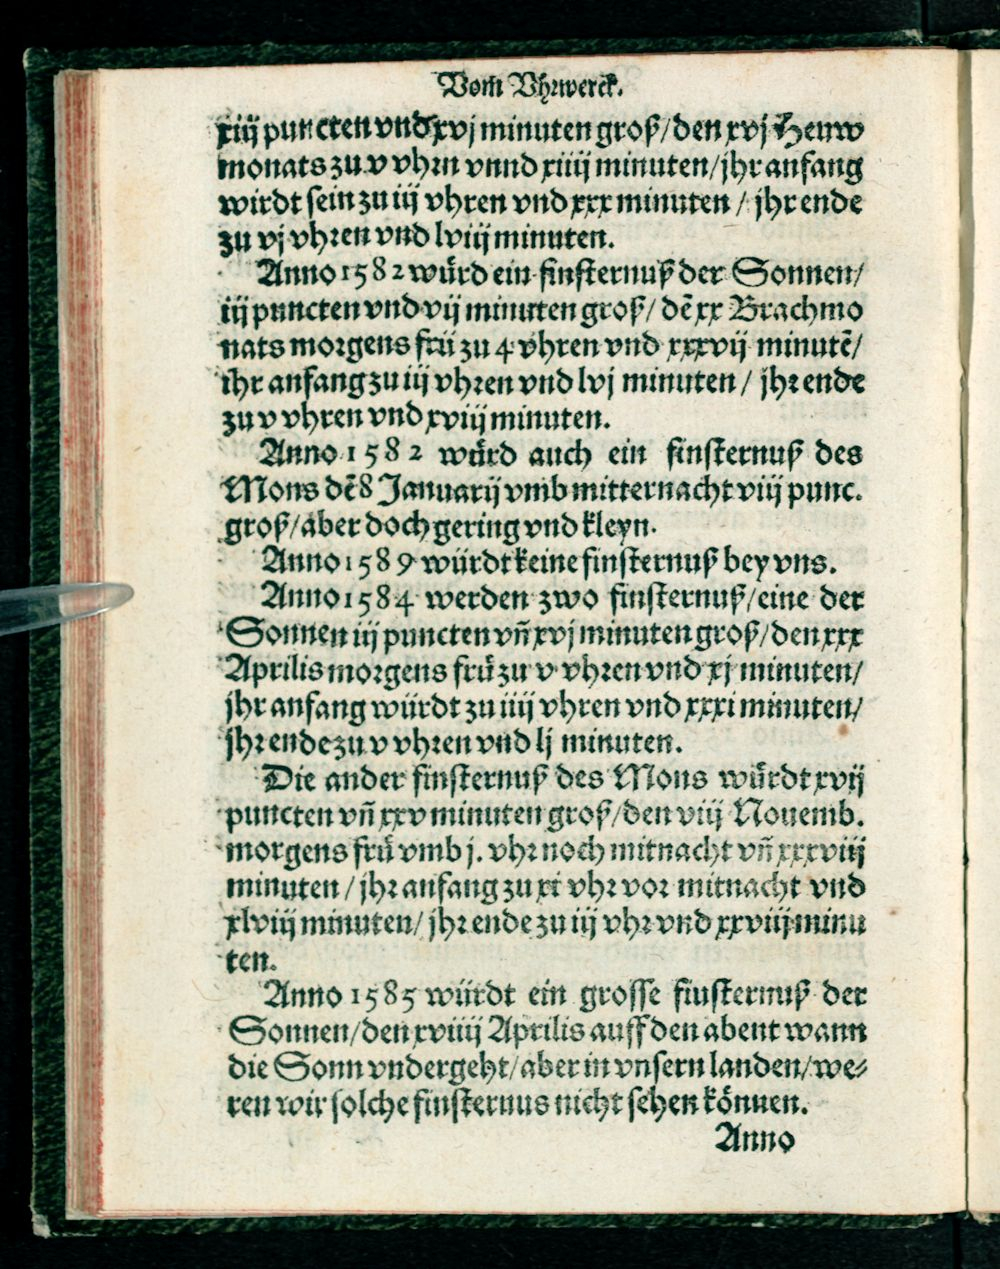 Vom Vhrwerck.
xiij puncten vnd xvj minuten groß/den xvj Heuw
monats zu v vhrn vnnd xiiij minuten/jhr anfang
wirdt sein zu iij vhren vnd xxx minuten / jhr ende
zu vj vhren vnd lviij minuten.
Anno 1582 würd ein finsternuß der Sonnen/
iij puncten vnd vij minuten groß/ dē xx Brachmo
nats morgens frü zu 4 vhren vnd xxxvij minutē/
ihr anfang zu iij vhren vnd lvj minuten / jhr ende
zu v vhren vnd xviij minuten.
Anno 1582 würd auch ein finsternuß des
Mons dē 8 Januarij vmb mitternacht viij punc.
groß/aber doch gering vnd kleyn.
Anno 1589 würdt keine finsternuß bey vns.
Anno 1584 werden zwo finsternuß/eine der
Sonnen iij puncten vñ xvj minuten groß/den xxx
Aprilis morgens frü zu v vhren vnd xj minuten/
jhr anfang würdt zu iiij vhren vnd xxxi minuten/
jhr ende zu v vhren vnd lj minuten.
Die ander finsternuß des Mons würdt xvij
puncten vñ xxv minuten groß/den viij Nouemb.
morgens frü vmb j. vhr noch mitnacht vñ xxxviij
minuten / jhr anfang zu xi vhr vor mitnacht vnd
xlviij minuten/ jhr ende zu iij vhr vnd xxviij minu
ten.
Anno 1585 würdt ein grosse finsternuß der
Sonnen/den xviiij Aprilis auff den abent wann
die Sonn vndergeht/aber in vnsern landen/we⸗
ren wir solche finsternus nicht sehen können.
Anno